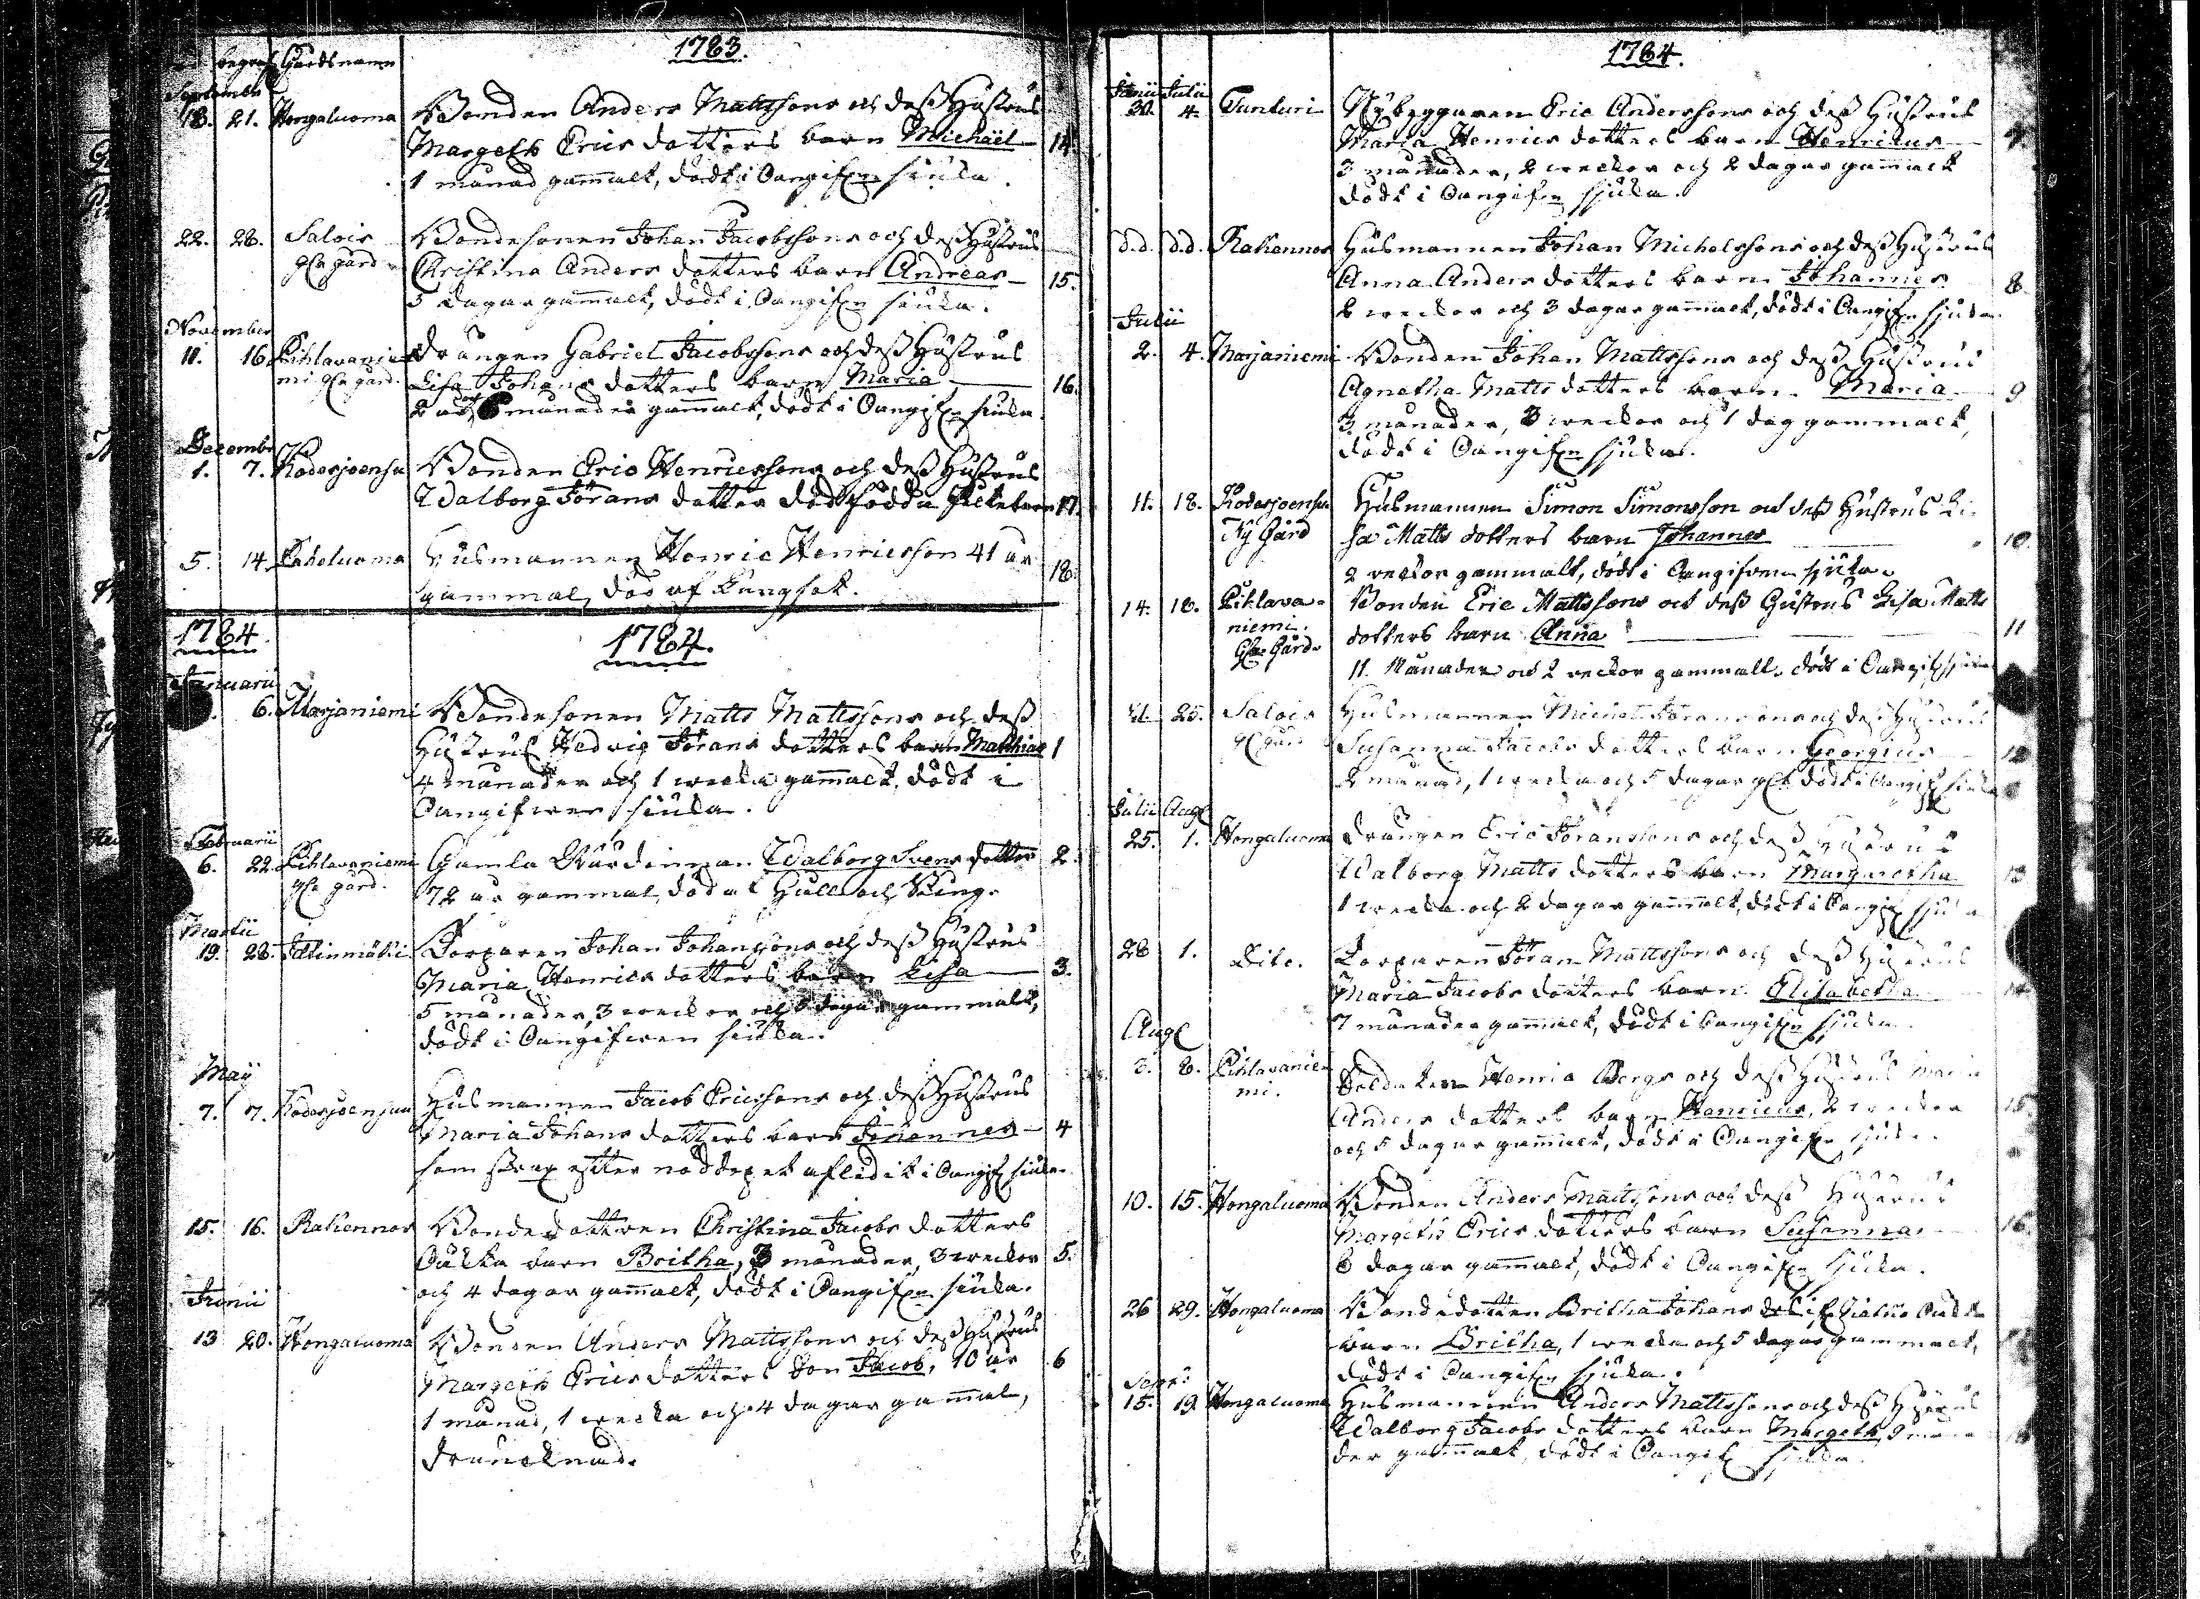 1783.
begrafn Gårds namn
Septembr
18. 21. Hongaluoma Bonden Anders Mattssons och dess Hustrus
Margeth Erics dotters barn Michaël 14.
1 månad gammalt, dödt i Oangifven siuka.
22. 28. Salois Bondesonen Johan Jacobssons och dess Hustrus
gla gård Christina Anders dotters barn Andreas 15.
5 dagar gammalt, dödt i Oangifn siuka.
November
11. 16 Pihlavanie Drängen Gabriel Jacobssons och dess Hustrus
mi gla gård. Lisa Johans dotters barn Maria 16.
2 år, månader gammalt, dödt i Oangifn siuka.
Decembr
1. 7. Kodesjoensu Bonden Eric Henricssons och dess Hustrus
Walborg Jörans dotter dödfödda flickebarn 17.
5. 14. Husmannen Henric Henricsson 41 år 18.
gammal, död af Lungsot.
1784. 1784.
Januarii
6. Marjaniemi Bondesonen Matts Mattssons och dess
Hustrus Hedvig Jörans dotters barn Matthias 1
4 månader och 1 wecka gammalt, dödt i
Oangifwen siuka.
Februarii
6. 22. Pihlavaniemi Gamla Wärdinnan Walborg Svens dotter 2.
gla gård. 72 år gammal, död af Håll och Sting.
Martii
19. 28. Torparen Johan Johanssons och dess Hustrus
Maria Henrics dotters barn Lisa 3.
5 månader, 3 weckor och dagar gammalt,
dödt i Oangifwen siuka.
Maÿ
7. 7. Kodesjoensuu Husmannen Jacob Ericssons och dess Hustrus
Maria Johans dotters barn Johannes 4
som strax efter nöddopet aflidit i Oangif siuka.
15. 16. Rahennor Bondedottren Christina Jacobs dotters
Oäkta barn Britha, 3 månader, 3 weckor 5.
och 4 dagar gammalt, dödt i Oangifn siuka.
Junii
13 20. Hongaluoma Bonden Anders Mattssons och dess Hustrus
Margeth Erics dotters Son Jacob, 10 år 6
1 månad, 1 wecka och 4 dagar gammal,
drunknad.
1784.
Junii Julii
30. 4. Tunturi Nybyggaren Eric Anderssons och dess Hustrus
Maria Henrics dotters barn Henricus
3 månader, 2 weckor och 2 dagar gammalt
dödt i Oangifn sjuka.
d.d. d.d. Rahennor Husmannen Johan Michelssons och dess Hustrus
Anna Anders dotters barn Johannes 8
weckor och 3 dagar gammalt, dödt i Oangifn sjuka.
Julii
2. 4. Marjaniemi Bonden Johan Mattssons och dess Hustrus
Agnetha Matts dotters barn Maria 9
3 månader, 3 weckor och 1 dag gammalt,
dödt i Oangifn sjuka.
11. 18. Kodesjoensuu Husmannen Simon Simonsson och dess Hustrus Li-
Ny Gård sa Matts dotters barn Johannes 10.
2 veckor gammalt, dödt i Oangifven sjuka.
14. 18. Pihlava- Bonden Eric Mattssons och dess Hustrus Lisa Matts
niemi. dotters barn Anna 11
Gla Gård. 11. Månader och 2 veckor gammalt, dödt i Oangif sjuka
21. 25. Salois Husmannen Michel Jöranssons och dess Hustrus
gl gård Susanna Jacobs dotters barn Georgius 12
månad, 1 wecka och 5 dagar glt dödt i Oangif siuka
Julii Augl
25. 1. Hongaluoma Drängen Eric Jöranssons och dess Hustrus
Walborg Matts dotters barn Margaretha 13
1 wecka och 2 dagar gammalt, dödt i Oangif sjuka
28 1. Dito. Torparen Jöran Mattssons och dess Hustrus
Maria Jacobs dotters barn Elisabetha
7 månader gammalt, dödt i Oangifn sjuka.
Augl
3. 8. Pihlavanie- Soldaten Henric Bergs och dess Hustrus Maria
mi. Anders dotters barn Henricus, 2 weckor 15
och 5 dagar gammalt, dödt i Oangifn sjuka.
10. 15. Hongaluoma Bonden Anders Mattssons och dess Hustrus
Margeth Erics dotters barn Susanna 16
dagar gammalt, dödt i Oangifn sjuka.
26 29. Hongaluoma Bondedottren Britha Johans
barn Britha, 1 wecka och 5 dagar gammalt,
dödt i Oangifn sjuka.
Sept:
15. 19. Hongaluoma Husmannen Anders Mattssons och dess Hustrus
Walborg Jacobs dotters barn Margeth, 9 måna
der gammalt, dödt i Oangif sjuka.